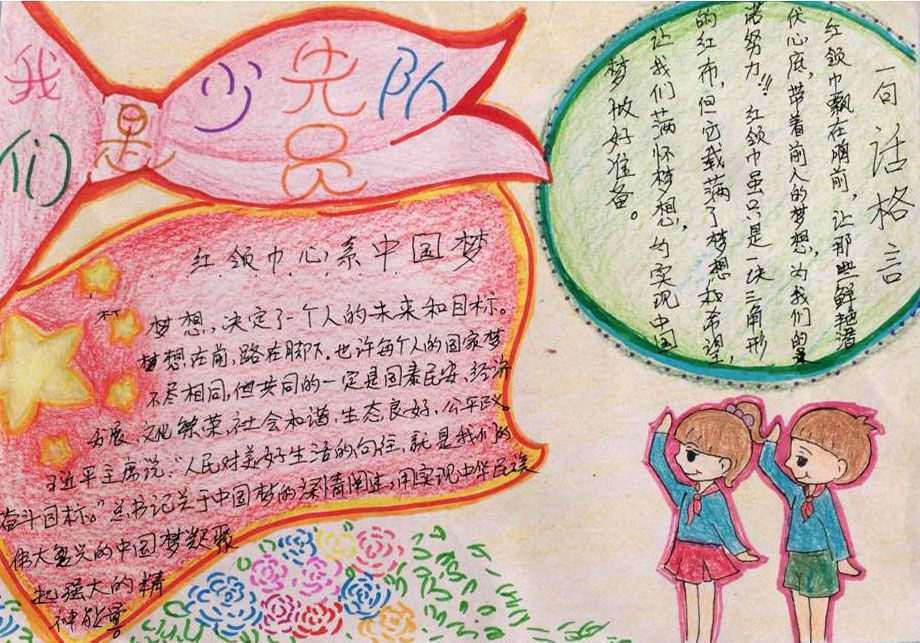 我们是少先队员
红领巾心系中国梦
梦想，决定了一个人的未来和目标。
梦想在前，路在脚下。也许每个人的国家梦
不尽相同，但共同的一定是国泰民安、经济
发展、文化繁荣、社会和谐、生态良好、公平
习近平主席说：“人民对美好生活的向往，就是我们的
奋斗目标。”总书记关于中国梦的深情阐述，用实现中华民族
伟大复兴的中国梦凝聚
起强大的精
神能量
一句话格言
红领巾飘在胸前，让那些鲜艳
伏心底，带着前人的梦想，为我们的
努力！！红领巾虽只是一块三角形
的红布，但它载满了梦想和希望，
让我们满怀梦想，为实现中国
梦做好准备。